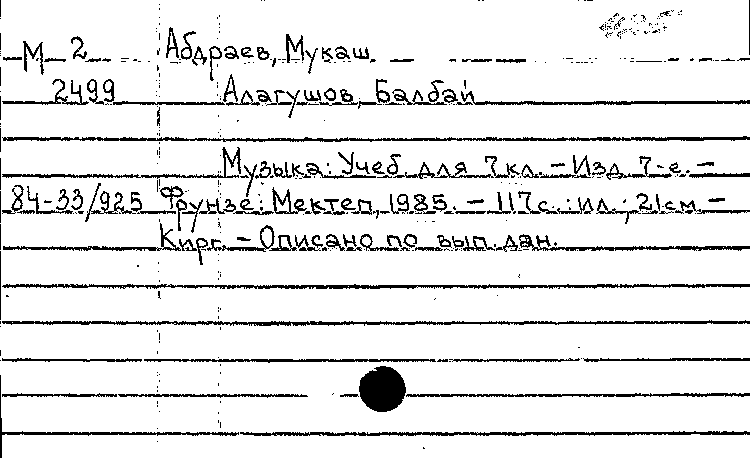 М 2 Абдраев, Мукаш.
2499 Алагушов, Балбай
Музыка: Учеб. для 7 кл. - Изд. 7-е. -
84-33/925 Фрунзе: Мектеп, 1985. - 117с.: ил.; 21см. -
Кирг. - Описано по вып. дан.